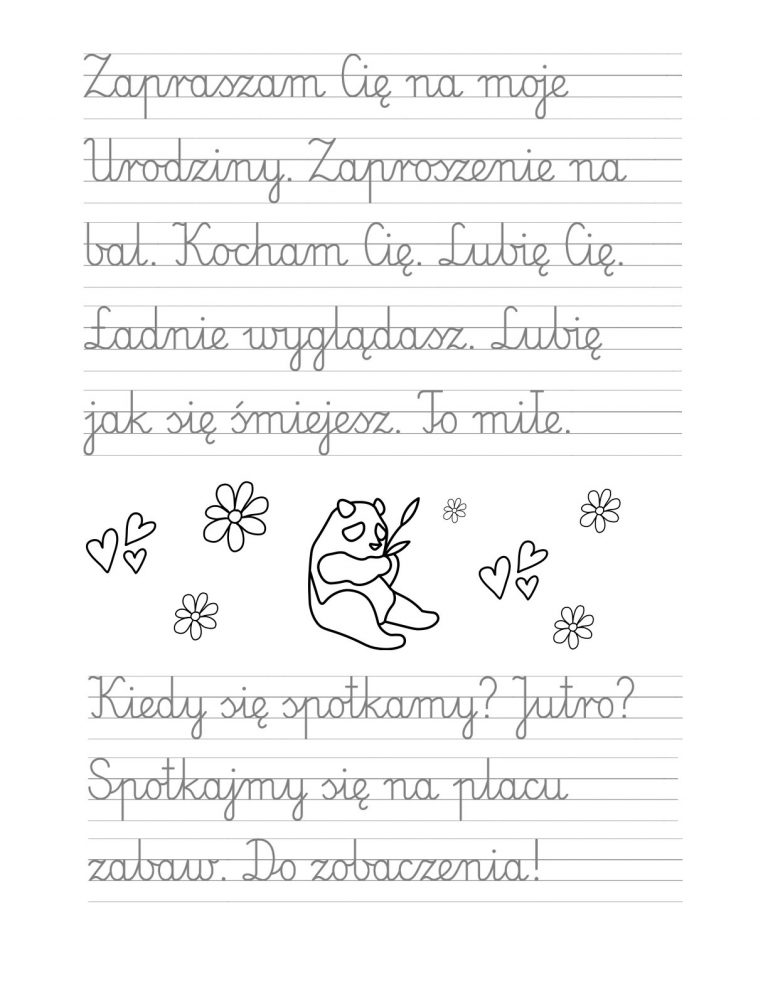 Zapraszam Cię na moje
Urodziny. Zaproszenie na
bal. Kocham Cię. Lubię Cię.
Ładnie wyglądasz. Lubię
jak się śmiejesz. To miłe.
Kiedy się spotkamy? Jutro?
Spotkajmy się na placu
zabaw. Do zobaczenia!